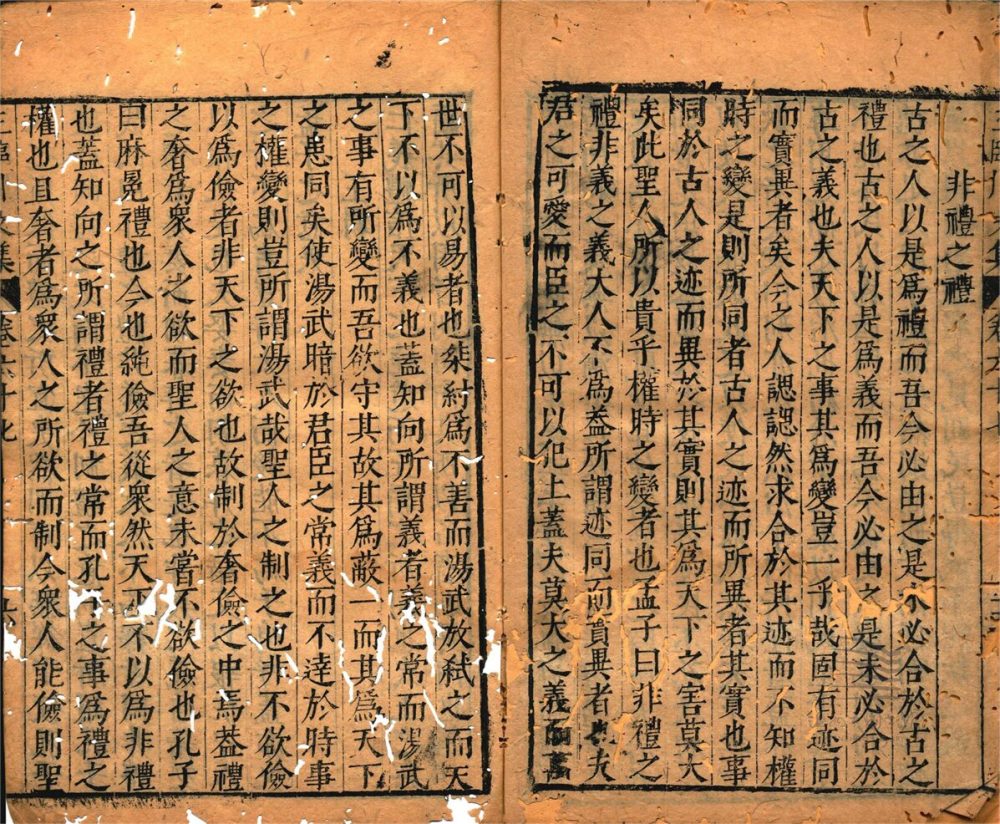 非禮之禮
古之人以是爲禮而吾今必由之是未必合於古之
禮也古之人以是爲義而吾今必由之是未必合於
古之義也夫天下之事其爲變豈一乎哉固有迹同
而實異者矣今之人諰諰然求合於其迹而不知權
時之變是則所同者古人之迹而所異者其實也事
同於古人之迹而異於其實則其爲天下之害莫大
矣此聖人所以貴乎權時之變者也孟子曰非禮之
禮非義之義大人不爲蓋所謂迹同而實異者也夫
君之可愛而臣之不可以犯上蓋夫莫大之義而萬
世不可以易者也桀紂爲不善而湯武放弑之而天
下不以爲不義也蓋知向所謂義者義之常而湯武
之事有所變而吾欲守其故其爲蔽一而其爲天下
之患同矣使湯武暗於君臣之常義而不達於時事
之權變則豈所謂湯武哉聖人之制之也非不欲儉
以爲儉者非天下之欲也故制於奢儉之中焉蓋禮
之奢爲衆人之欲而聖人之意未嘗不欲儉也孔子
曰麻冕禮也今也純儉吾從衆然天下不以爲非禮
也蓋知向之所謂禮者禮之常而孔子之事爲禮之
權也且奢者爲衆人之所欲而制今衆人能儉則聖